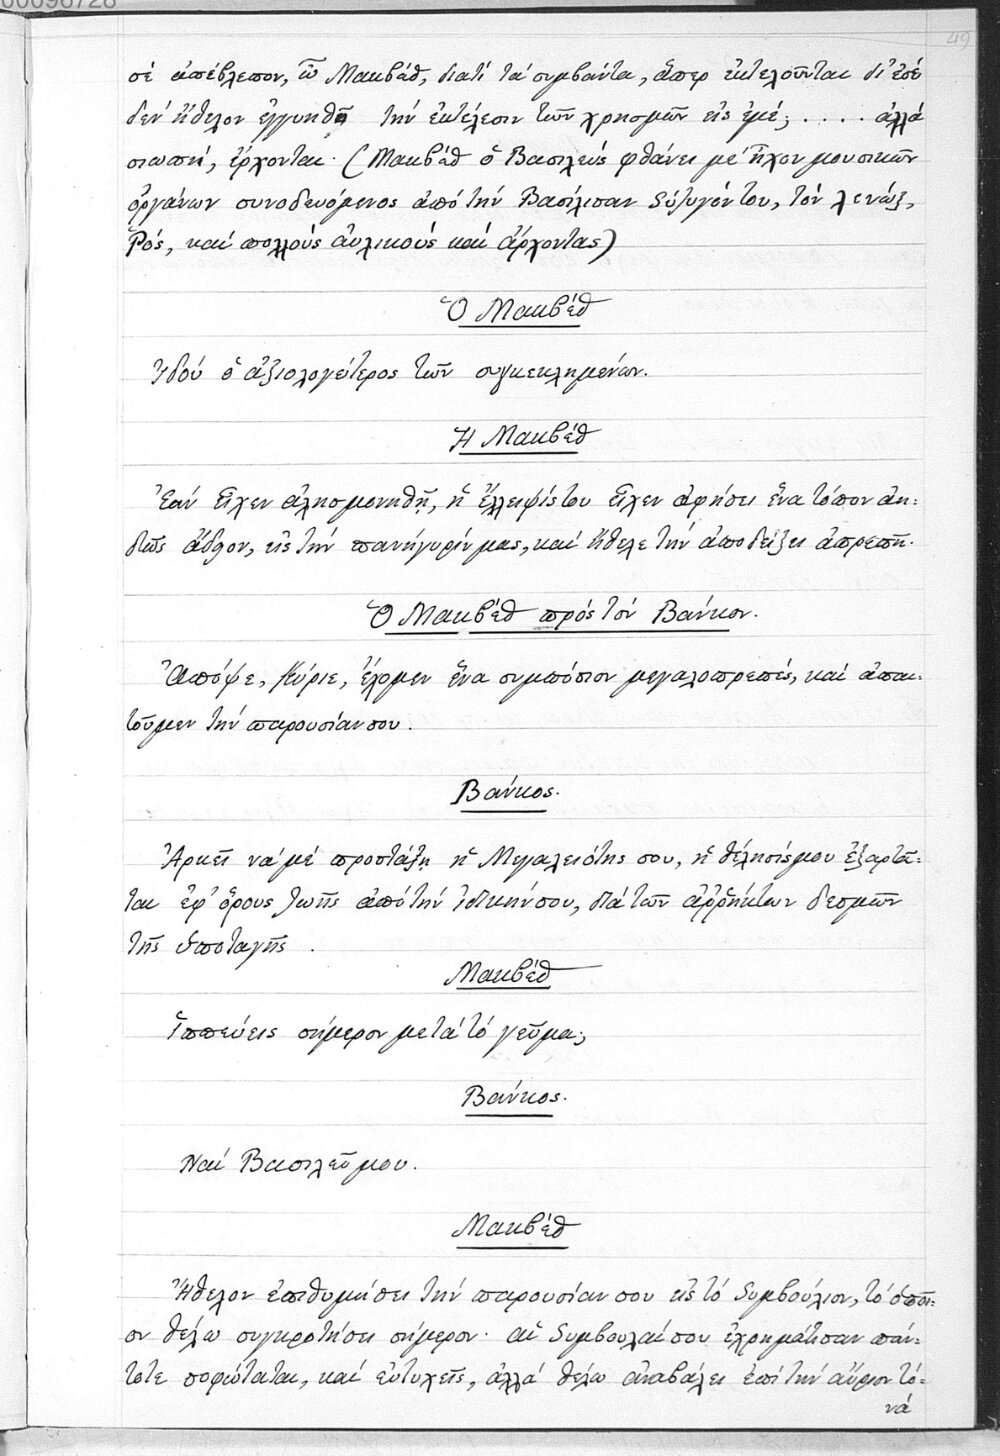 00096728
49
σέ ἀπέβλεπον, ὦ Μακβέθ, διατί τά συμβάντα, ἅπερ ἐκτελοῦνται δι' ἐσέ
δέν ἤθελον ἐγγυηθῆ τήν ἐκτέλεσιν τῶν χρησμῶν εἰς ἐμέ; .... ἀλλά
σιωπή, ἔρχονται. (Μακβέθ ὁ Βασιλεύς φθάνει μέ ἦχον μουσικῶν
ὀργάνων συνοδευόμενος ἀπό τήν Βασίλισαν Σύζυγόν του, τόν Λενώξ,
Ῥός, καί πολλούς αὐλικούς καί ἄρχοντας)
Ὁ Μακβέθ
Ἰδού ὁ ἀξιολογώτερος τῶν συγκεκλημένων.
Ἡ Μακβέθ
Ἐάν εἶχεν ἀλησμονηθῆ, ἡ ἔλλειψίς του εἶχεν ἀφήσει ἕνα τόπον ἀη=
δῶς ἄδειον, εἰς τήν πανήγυρίν μας, καί ἤθελε τήν ἀποδείξει ἀπρεπῆ.
Ὁ Μακβέθ πρός τόν Βάνκον.
Ἀπόψε, Κύριε, ἔχομεν ἕνα συμπόσιον μεγαλοπρεπές, καί ἀπαι=
τοῦμεν τήν παρουσίαν σου.
Βάνκος.
Ἀρκεῖ νά μέ προστάξῃ ἡ Μεγαλειότης σου, ἡ θέλησίς μου ἐξαρτᾶ=
ται ἐφ' ὅρους ζωῆς ἀπό τήν ἰδικήν σου, διά τῶν ἀῤῥήκτων δεσμῶν
τῆς ὑποταγῆς.
Μακβέθ
Ἱππεύεις σήμερον μετά τό γεῦμα;
Βάνκος.
Ναί Βασιλεῦ μου.
Μακβέθ
Ἤθελον ἐπιθυμήσει τήν παρουσίαν σου εἰς τό Συμβούλιον, τό ὁποῖ=
ον θέλω συγκροτήσει σήμερον. αἱ Συμβουλαί σου ἐχρημάτισαν πάν=
τοτε σοφώταται, καί εὐτυχεῖς, ἀλλά θέλω ἀναβάλει ἐπί τήν αὔριον τό=
νά